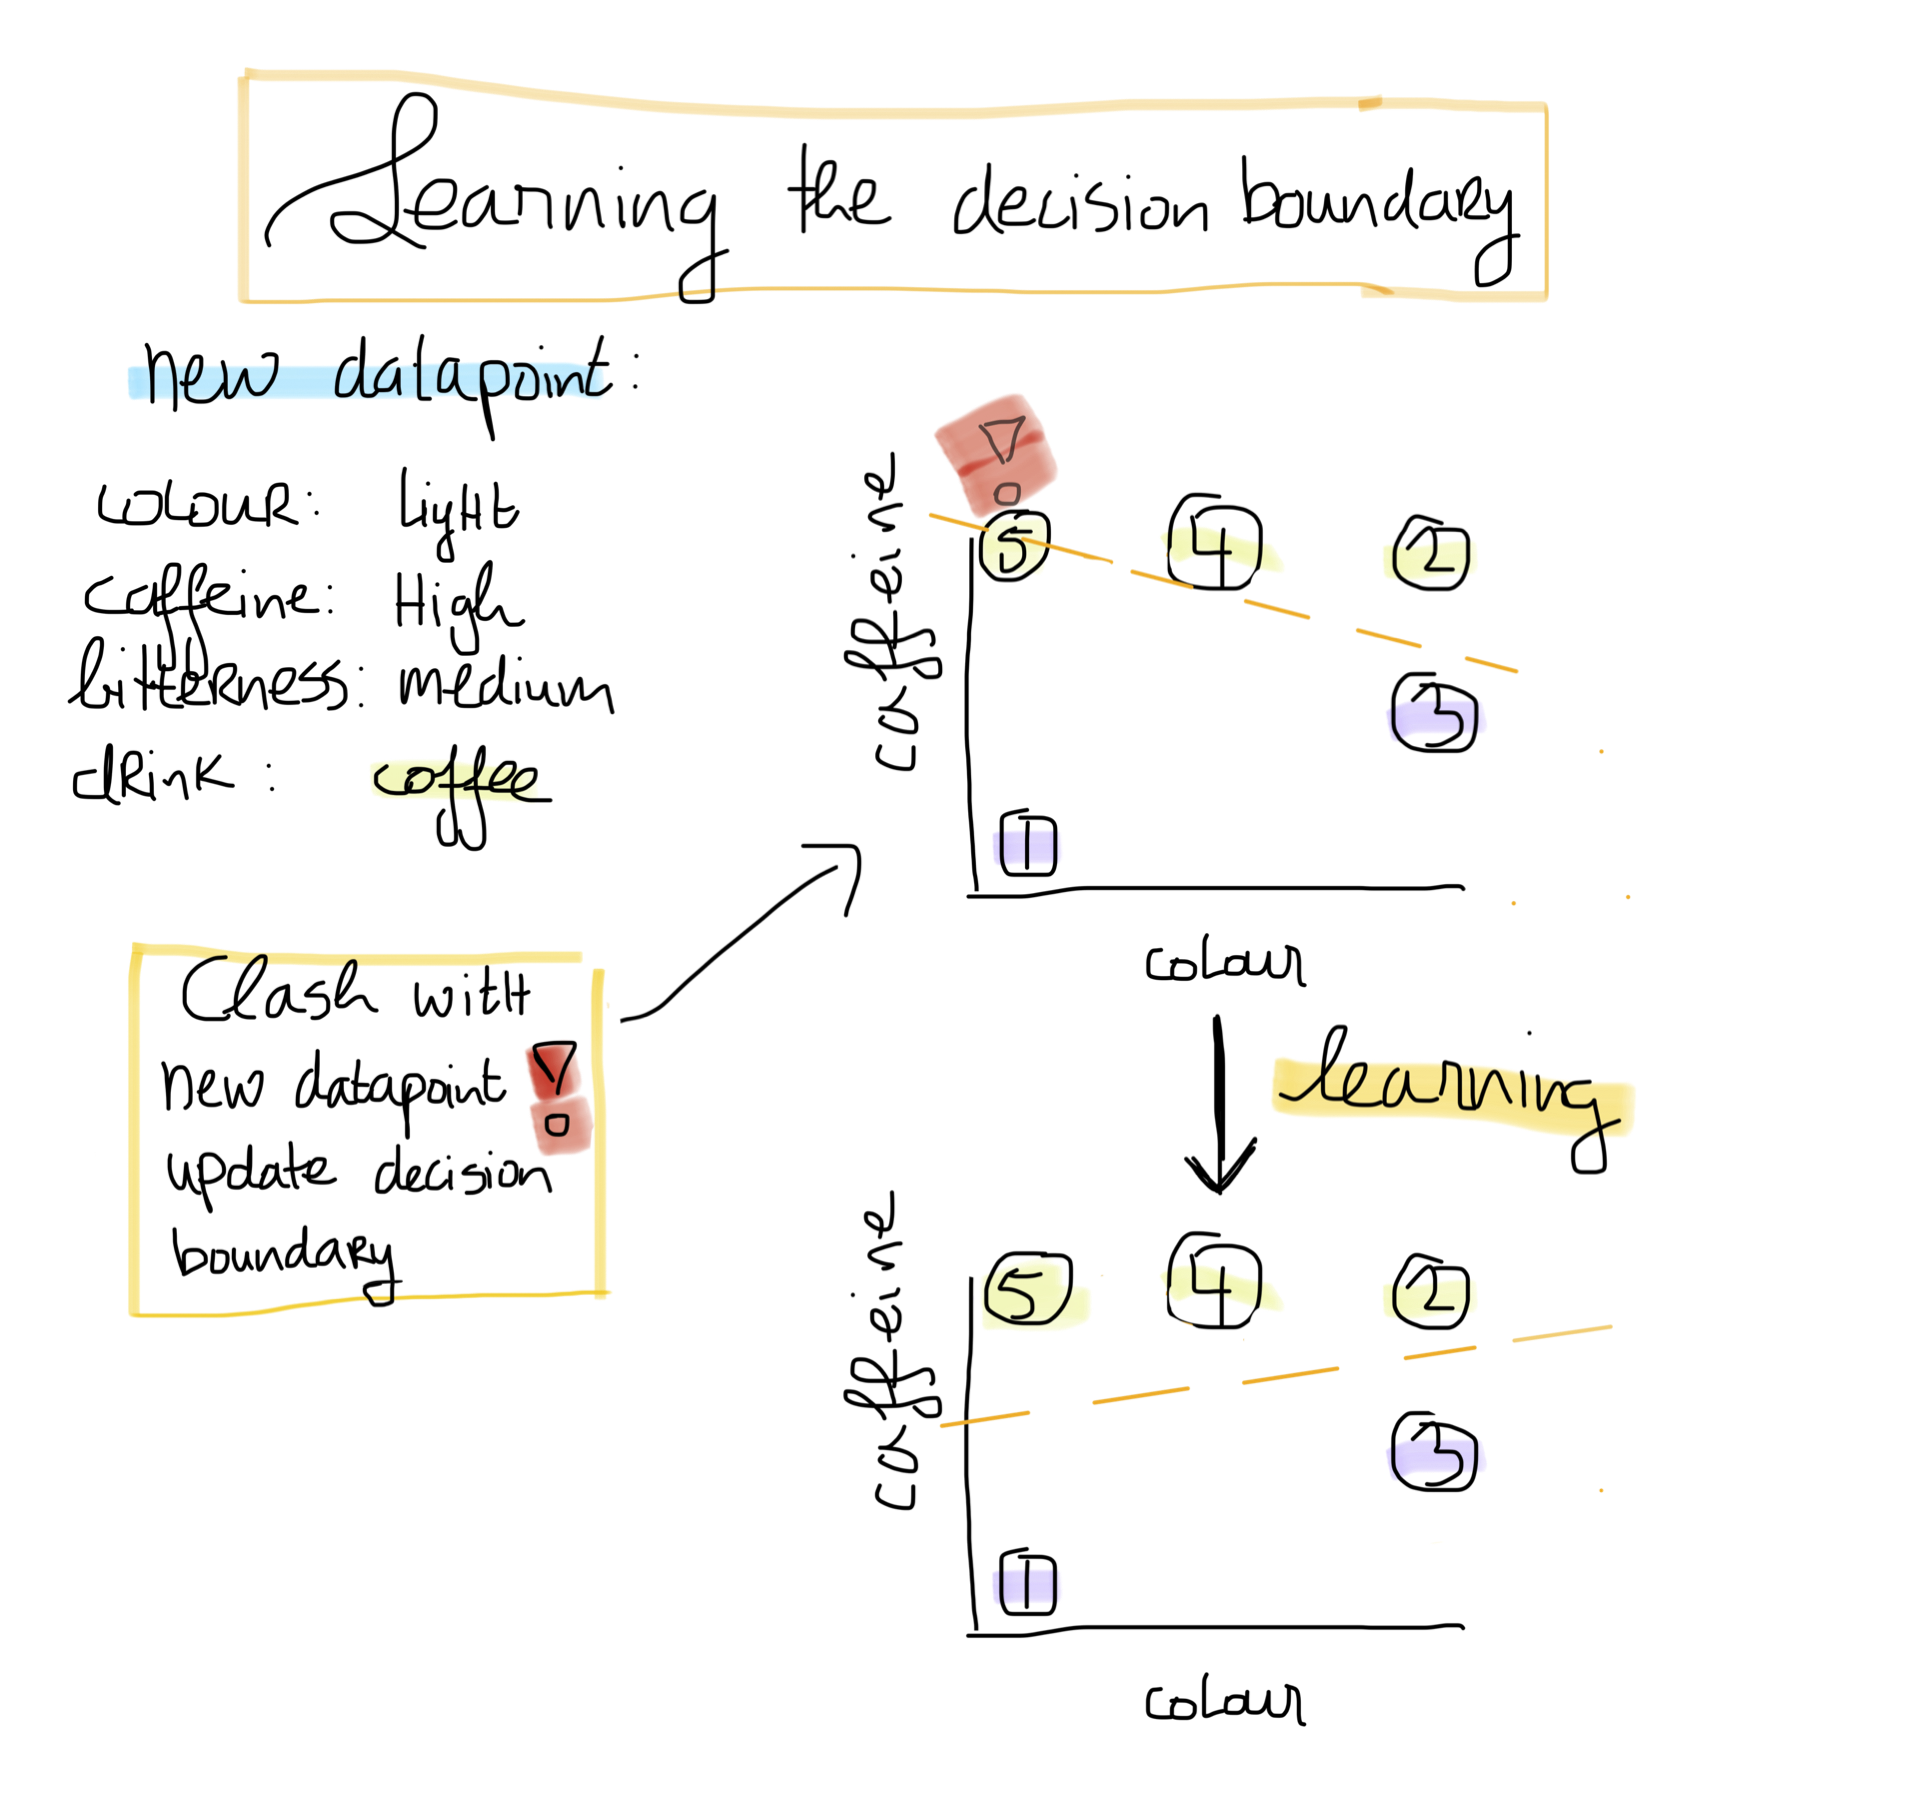 Learning the decision boundary
new datapoint:
colour: light
caffeine: High
bitterness: medium
drink: coffee
Clash with
new datapoint !
update decision
boundary
!
caffeine
5 4 2
3
1
colour
learning
caffeine
5 4 2
3
1
colour